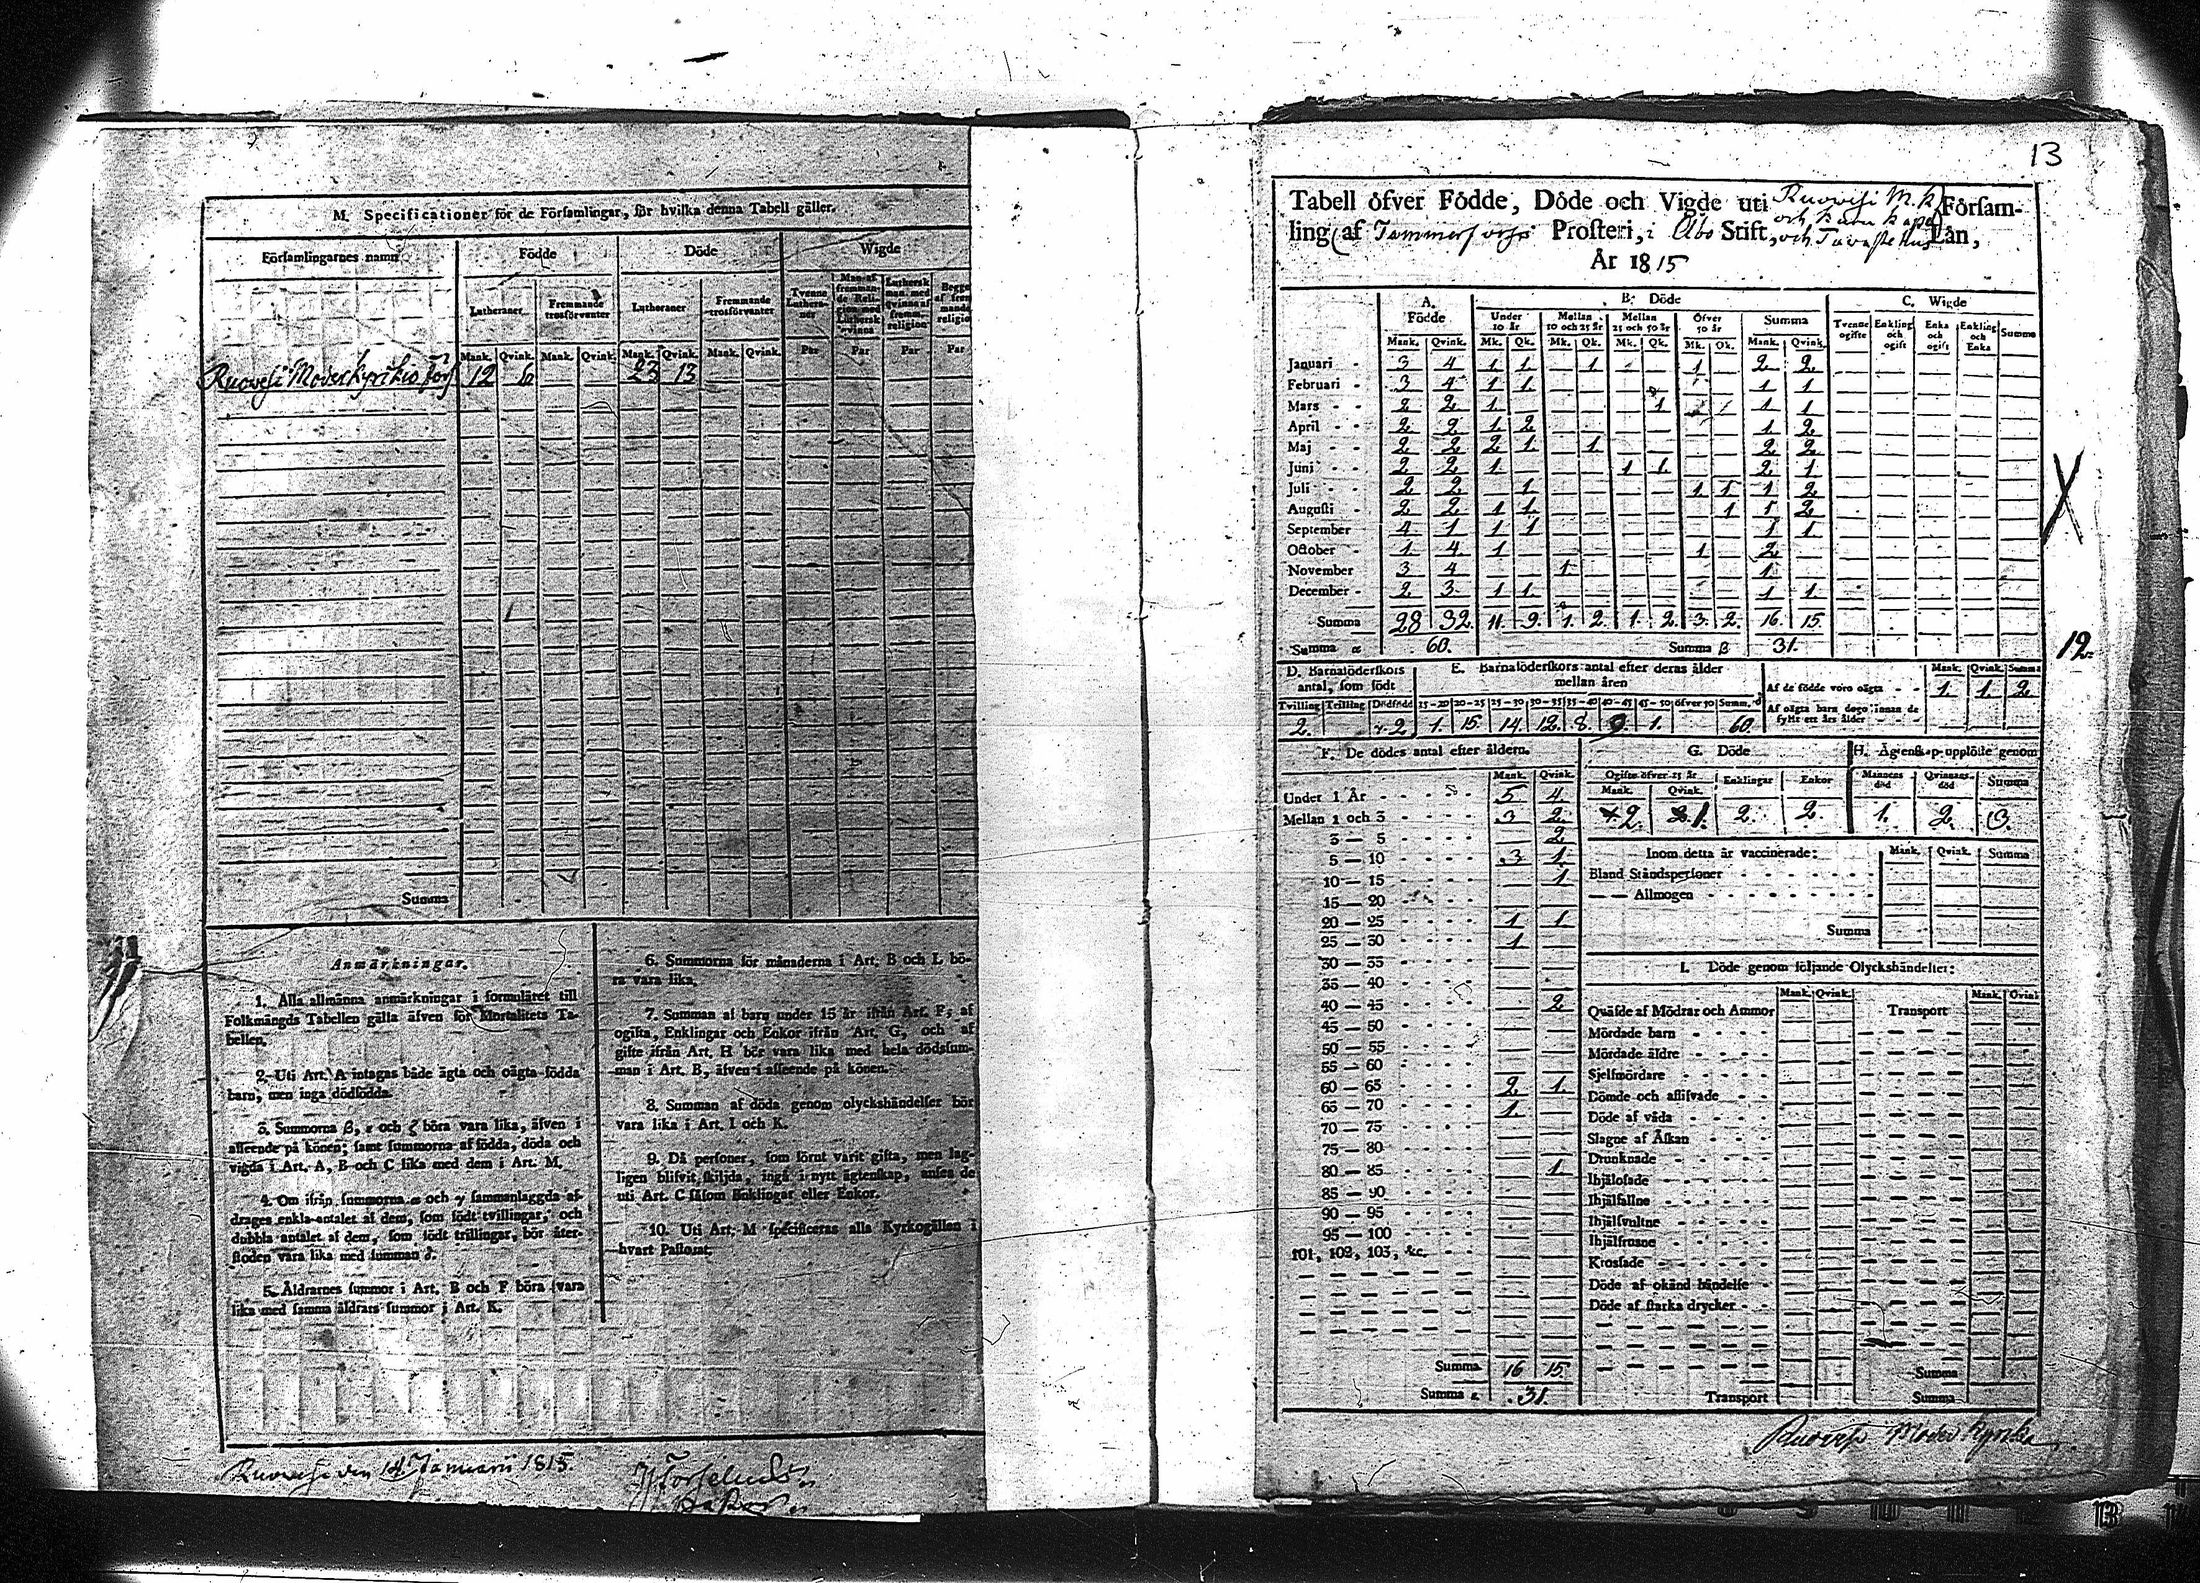 M. Specificationer för de Församlingar, för hvilka denna Tabell gäller.
Församlingarnes namn | Födde | Döde | Wigde
Lutheraner | Fremmande trosförvanter | Lutheraner | Fremmande trosförvanter | Tvenne Lutheraner | Man af främmande Religion med Luthersk qvinna | Luthersk man med qvinna af fremm. religion | Begge af fremmande religio
Mank. Qvink. Mank. Qvink. Mank. Qvink. Mank. Qvink. Par Par Par Par
Ruovesi Moderkyrkio förs 12 6 23 13
Summa
Anmärkningar.
1. Alla allmänna anmärkningar i formuläret till
Folkmängds Tabellen gälla äfven för Mortalitets Ta-
bellen.
2. Uti Art. A intagas både ägta och oägta födda
barn, men inga dödfödda.
3. Summorna β, ε och ζ böra vara lika, äfven i
afseende på könen; samt summorna af födda, döda och
vigda i Art. A, B och C lika med dem i Art. M.
4. Om ifrån summorna α och γ sammanlaggda af-
drages enkla antalet af dem, som födt tvillingar, och
dubbla antalet af dem, som födt trillingar, bör åter-
stoden vara lika med summan δ.
5. Åldrarnes summor i Art. B och F böra vara
lika med samma åldrars summor i Art. K.
6. Summorna för månaderna i Art. B och L bö-
ra vara lika.
7. Summan af barn under 15 år ifrån Art. F, af
ogifta, Enklingar och Enkor ifrån Art. G, och af
gifte ifrån Art. H bör vara lika med hela dödssum-
man i Art. B, äfven i afseende på könen.
8. Summan af döda genom olyckshändelser bör
vara lika i Art. I och K.
9. Då personer, som förut varit gifta, men lag-
ligen blifvit skiljda, ingå i nytt ägtenskap, anses de
uti Art. C såsom Enklingar eller Enkor.
10. Uti Art. M specificeras alla Kyrkogällen i
hvart Pastorat.
Ruovesi den 14 Januarii 1815
13
Tabell öfver Födde, Döde och Vigde uti Ruovesi M. K. Försam-
ling af Tammerfors Prosteri, i Åbo Stift, och Tavastehus Län,
År 1815
A. Födde | B. Döde | C. Wigde
Under 10 år | Mellan 10 och 25 år | Mellan 25 och 50 år | Öfver 50 år | Summa | Tvenne ogifte | Enkling och ogift | Enka och ogift | Enkling och Enka | Summa
Mank. Qvink. Mk. Qk. Mk. Qk. Mk. Qk. Mk. Qk. Mank. Qvink.
Januari 3 4 1 1 1 1 2 2
Februari 3 4 1 1 1 1
Mars 2 2 1 1 1 1
April 2 2 1 2 1 2
Maj 2 2 2 1 1 2 2
Juni 2 2 1 1 1 2 1
Juli 2 2 1 1 1 1 2
Augusti 2 2 1 1 1 1 2
September 4 1 1 1 1 1
October 1 4 1 1 2
November 3 4 1 1
December 2 3 1 1 1 1
Summa 28 32. 11. 9. 1. 2. 1. 2. 3. 2. 16. 15
Summa α 60. Summa β 31.
12.
D. Barnaföderskors antal, som födt
Tvilling Trilling Dödfödd
2. 2.
E. Barnaföderskors antal efter deras ålder mellan åren
15—20 20—25 25—30 30—35 35—40 40—45 45—50 öfver 50 Summ. δ
1. 15. 14. 12. 8. 9. 1. 60.
Mank. Qvink. Summa
Af de födde voro oägta 1. 1. 2
Af oägta barn dogo innan de
fyllt ett års ålder
F. De dödes antal efter åldern.
Mank. Qvink.
Under 1 År 5 4
Mellan 1 och 3 3 2
3 — 5 2
5 — 10 3 1
10 — 15 1
15 — 20
20 — 25 1 1
25 — 30 1
30 — 35
35 — 40
40 — 45 2
45 — 50
50 — 55
55 — 60
60 — 65 2 1
65 — 70 1
70 — 75
75 — 80
80 — 85 1
85 — 90
90 — 95
95 — 100
101, 102, 103, &c.
Summa 16 15
Summa ε 31.
G. Döde
Ogifte öfver 15 år | Enklingar | Enkor
Mank. Qvink.
2. 1. 2. 2.
H. Ägtenskap upplöste genom
Mannens död | Qvinnans död | Summa
1. 2. 3.
Inom detta år vaccinerade: Mank. Qvink. Summa
Bland Ståndspersoner
— — Allmogen
Summa
I. Döde genom följande Olyckshändelser:
Mank. Qvink. Mank. Qvink
Quäfde af Mödrar och Ammor Transport
Mördade barn
Mördade äldre
Sjelfmördare
Dömde och aflifvade
Döde af våda
Slagne af Åskan
Drunknade
Ihjälosade
Ihjälfallne
Ihjälsvultne
Ihjälfrusne
Krossade
Döde af okänd händelse
Döde af starka drycker
Summa
Transport Summa
Ruovesi Moder Kyrcka
13